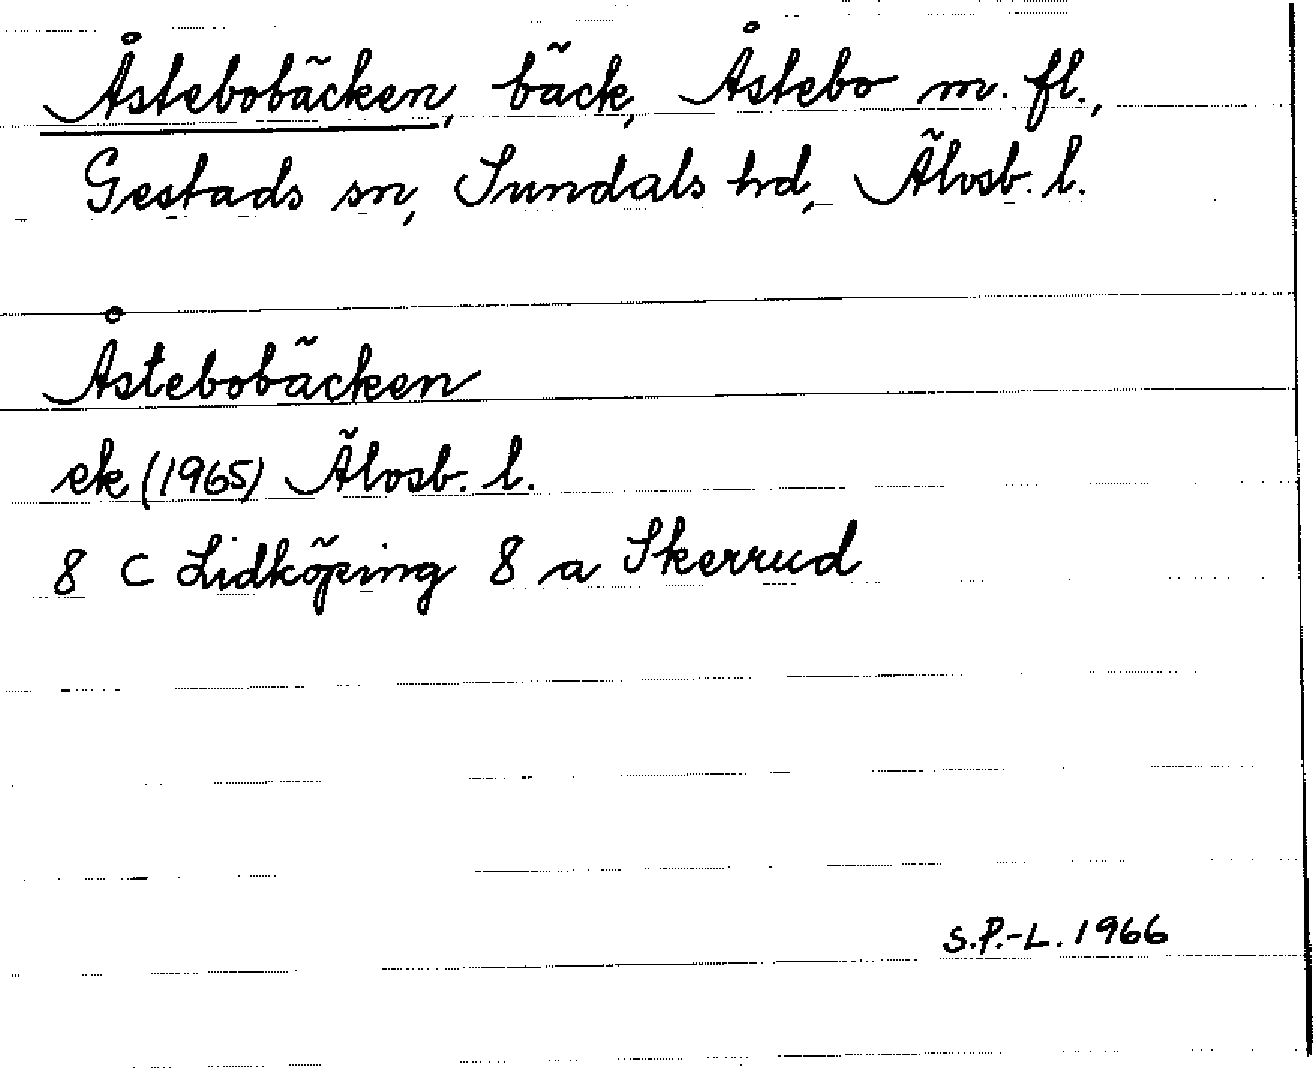 Åstebobäcken, bäck, Åstebo m. fl.,
Gestads sn, Sundals hd, Älvsb. l.
Åstebobäcken
ek (1965) Älvsb. l.
8 C Lidköping 8 a Skerrud
S.P.-L. 1966